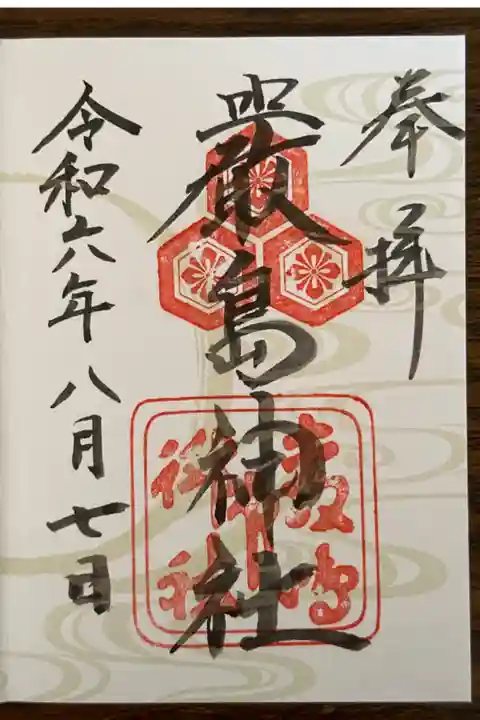 奉拝
厳島神社
令和六年八月七日